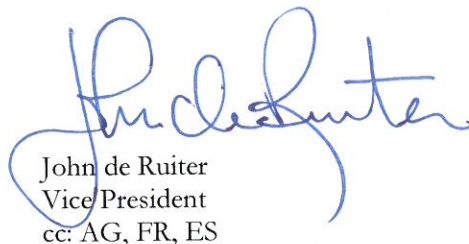 John de Ruiter
John de Ruiter
Vice President
cc: AG, FR, ES